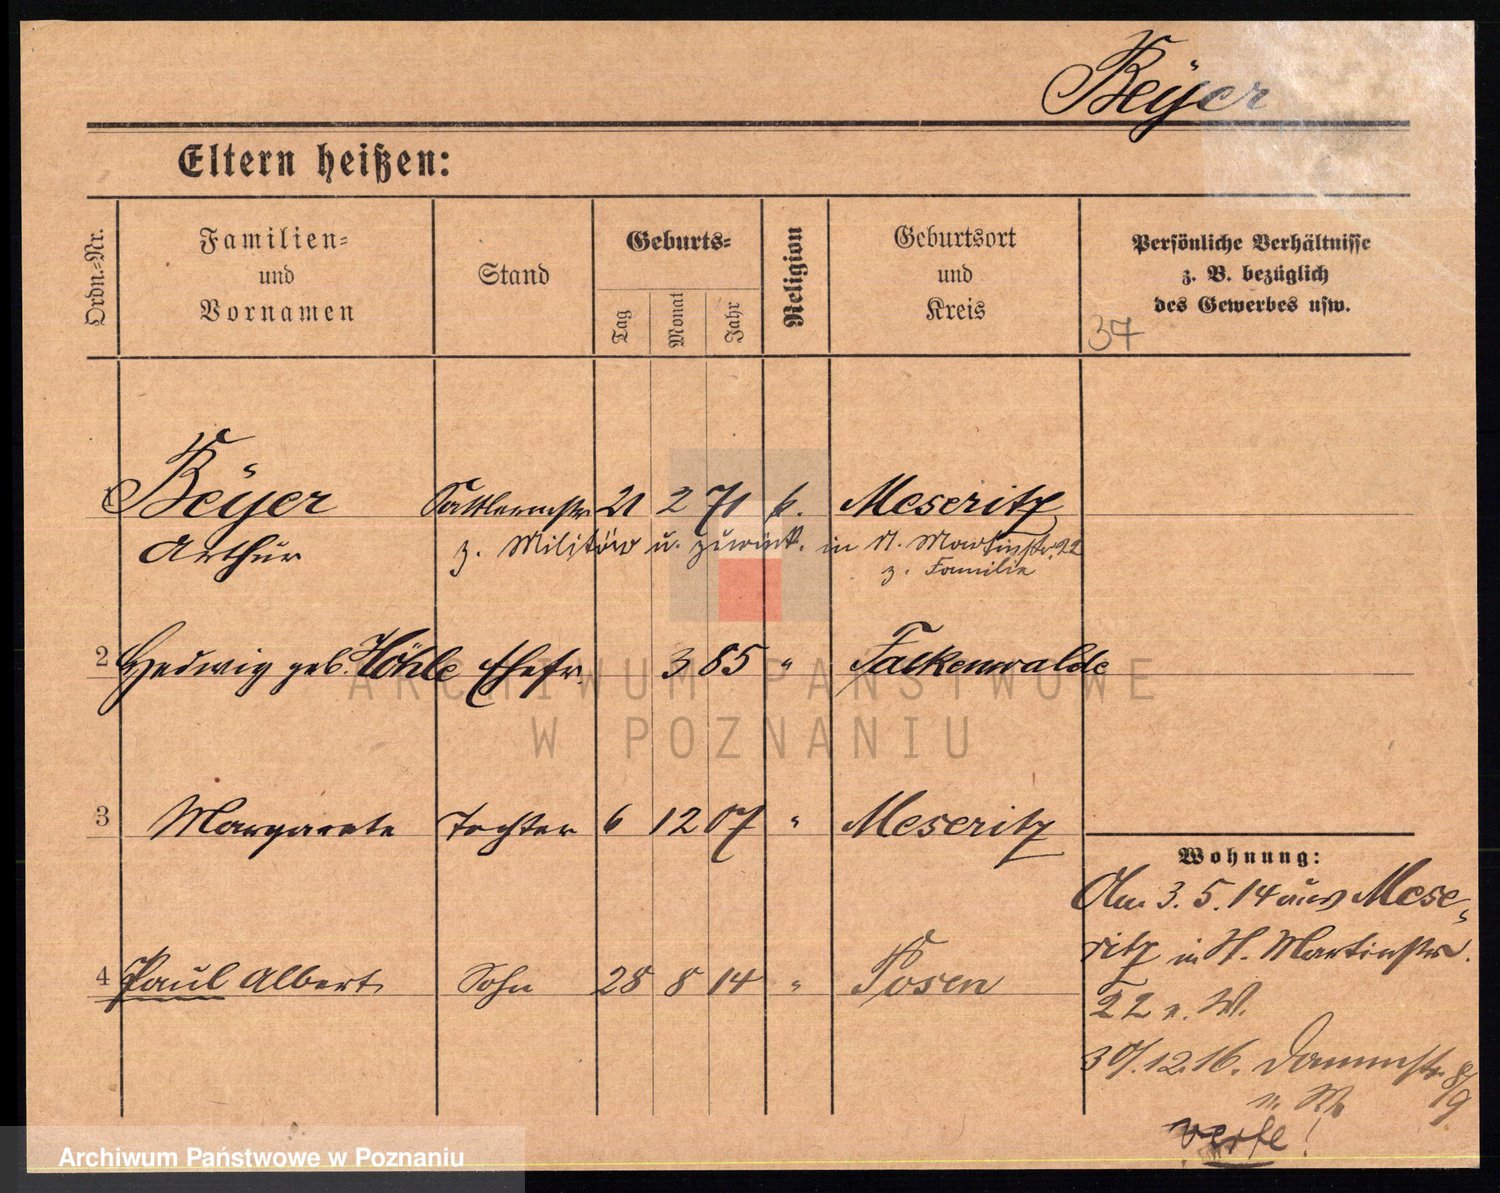 Beÿer
Eltern heißen:
Ordn.-Nr.
Familien-
und
Vornamen
Stand
Geburts-
Tag
Monat
Jahr
Religion
Geburtsort
und
Kreis
Persönliche Verhältnisse
z. B. bezüglich
des Gewerbes usw.
37
1 Beÿer Sattlermstr 21 2 71 k. Meseritz
Arthur z. Militär u. zurück. in St. Martinstr. 22
z. Familie
2 Hedwig geb. Höhle Ehefr. 3 85 " Falkenwalde
3 Margarete Tochter 6 12 07 " Meseritz
4 Paul Albert Sohn 28 8 14 " Posen
Wohnung:
Am 3. 5. 14 aus Mese-
ritz in St. Martinstr.
22 n. W.
30/.12.16. Dammstr. 8/9
n. W.
ARCHIWUM PAŃSTWOWE
W POZNANIU
Archiwum Państwowe w Poznaniu